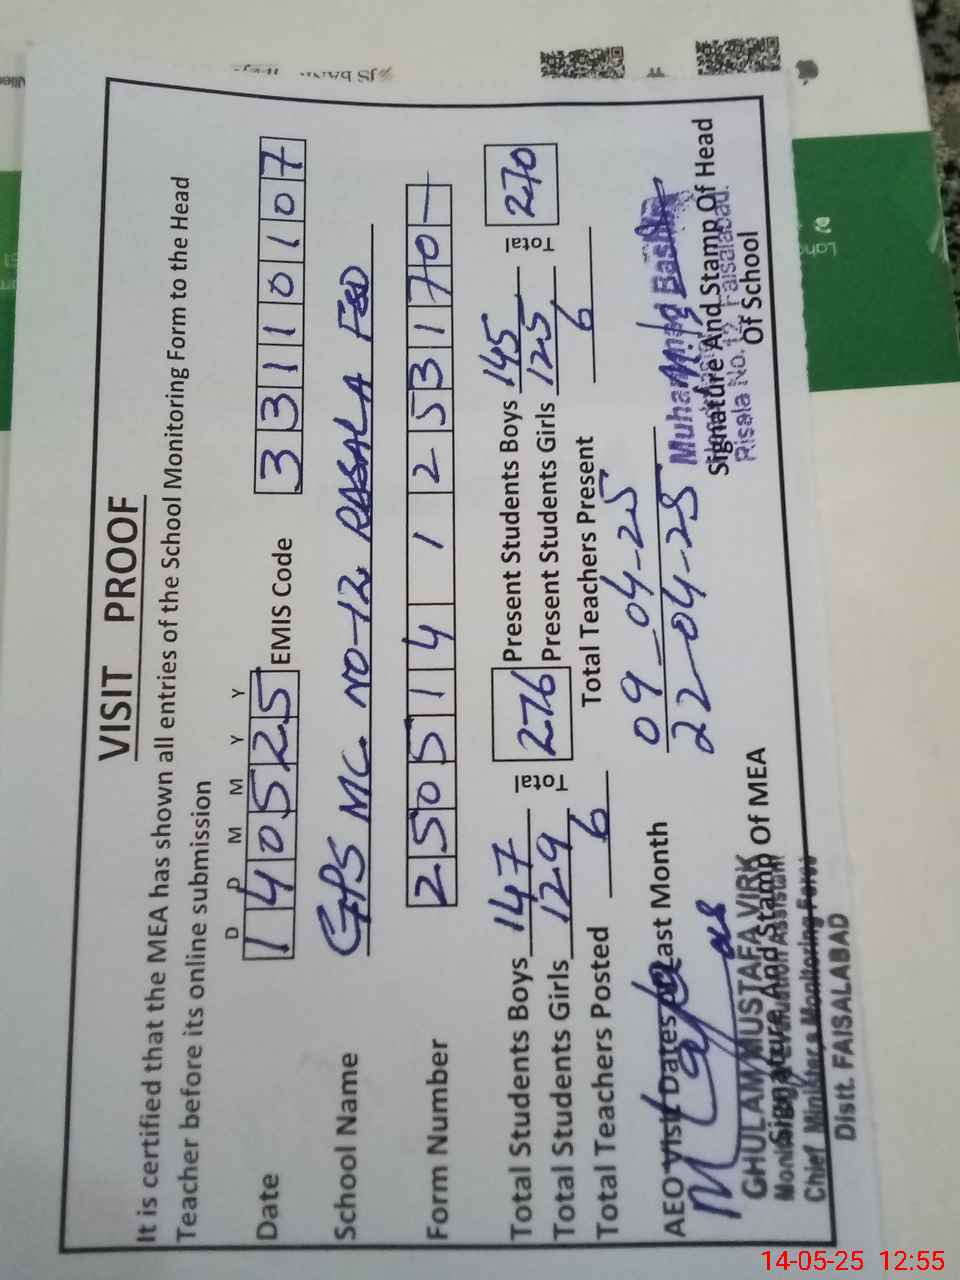 VISIT PROOF
It is certified that the MEA has shown all entries of the School Monitoring Form to the Head
Teacher before its online submission
D D M M Y Y
Date 140525 EMIS Code 33110107
School Name GPS MC NO-12 RASALA FSD
Form Number 250514 1 253170-
Total Students Boys 147 Total 276 Present Students Boys 145 Total 270
Total Students Girls 129 Present Students Girls 125
Total Teachers Posted 6 Total Teachers Present 6
AEO Visit Dates of Last Month 09-04-25
22-04-25
Muhammad
GHULAM MUSTAFA VIRK
Signature And Stamp Of MEA
Signature And Stamp Of Head
Of School
Risala No. 12, Faisalabad.
Monitoring Evaluation Assistant
Chief Minister's Monitoring Force
Distt. FAISALABAD
JS BANK
14-05-25 12:55